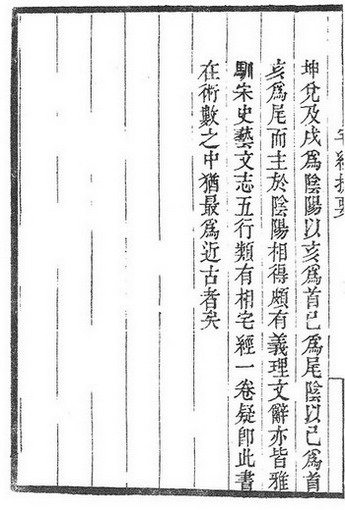 宅經提要
坤兌及戌爲陰陽以亥爲首巳爲尾陰以巳爲首
亥爲尾而主於陰陽相得頗有義理文辭亦皆雅
馴宋史藝文志五行類有相宅經一卷疑卽此書
在術數之中猶最爲近古者矣